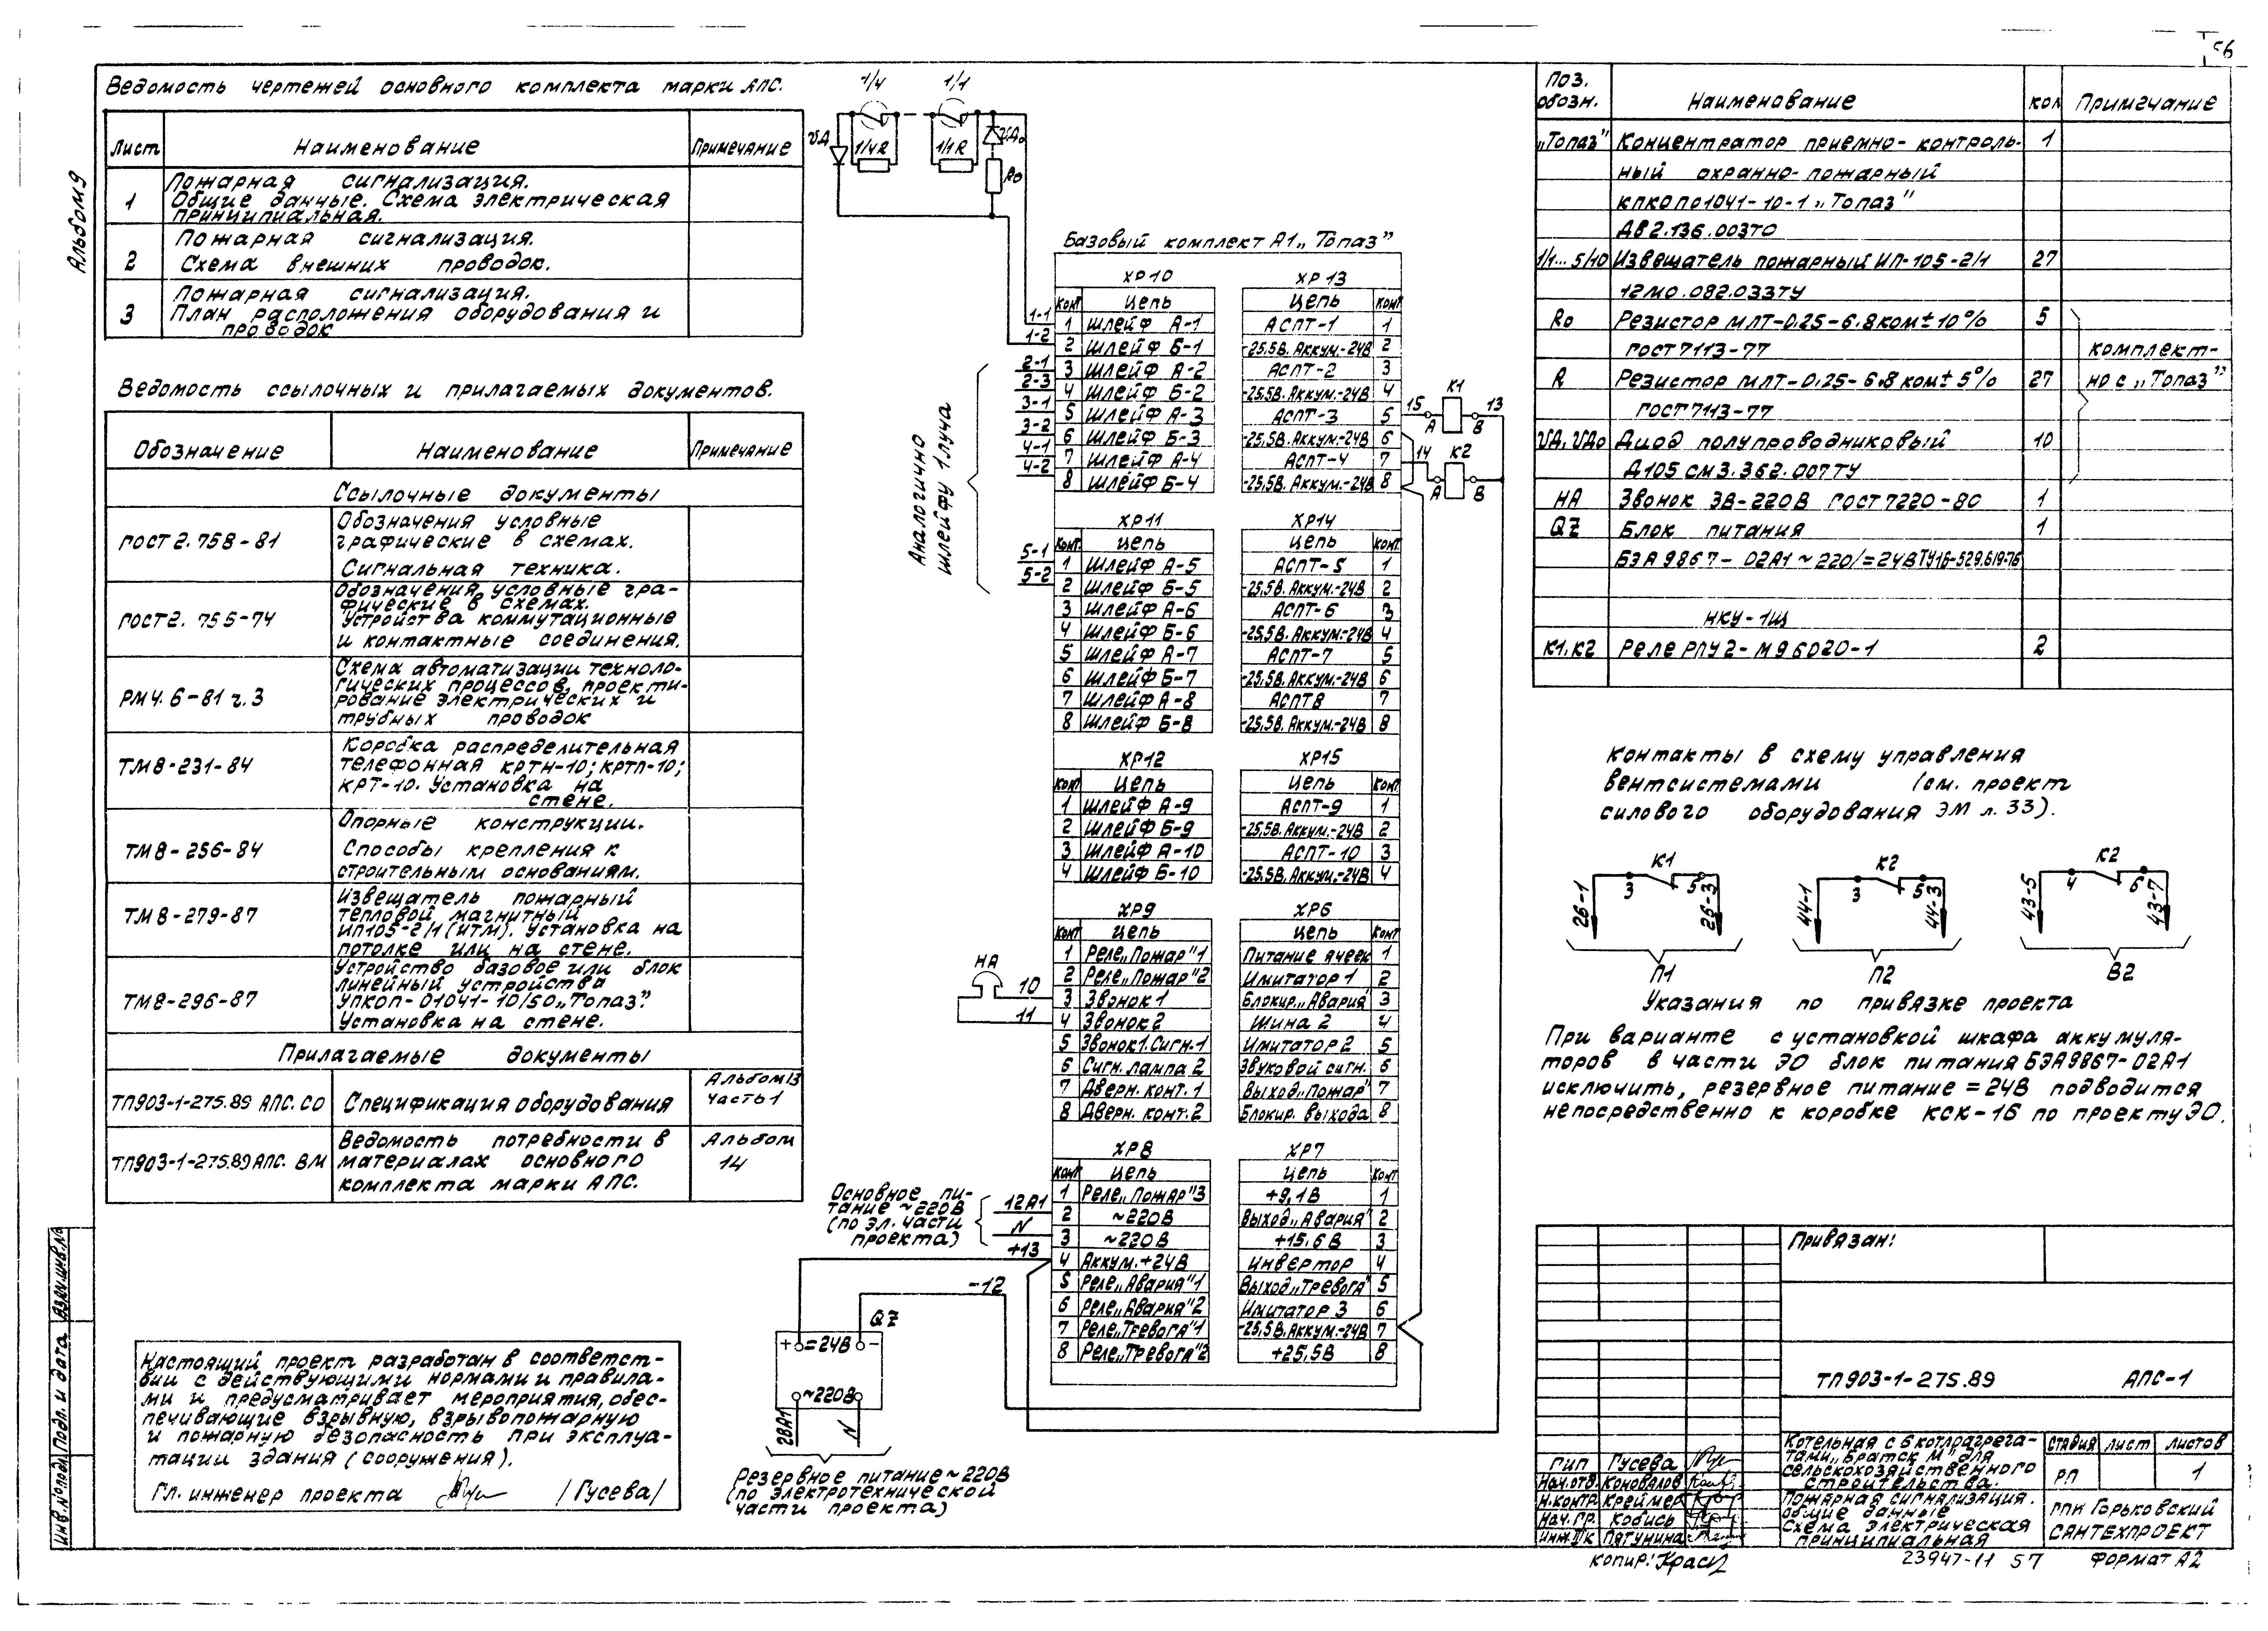 56
Альбом 9
Ведомость чертежей основного комплекта марки АПС.
Лист Наименование Примечание
1 Пожарная сигнализация.
Общие данные. Схема электрическая
принципиальная.
2 Пожарная сигнализация.
Схема внешних проводок.
3 Пожарная сигнализация.
План расположения оборудования и
проводок
Ведомость ссылочных и прилагаемых документов.
Обозначение Наименование Примечание
Ссылочные документы
ГОСТ 2.758-81 Обозначения условные
графические в схемах.
Сигнальная техника.
ГОСТ 2.755-74 Обозначения условные гра-
фические в схемах.
Устройства коммутационные
и контактные соединения.
РМ4.6-81 ч.3 Схема автоматизации техноло-
гических процессов, проекти-
рование электрических и
трубных проводок
ТМ8-231-84 Коробка распределительная
телефонная КРТН-10; КРТП-10;
КРТ-10. Установка на
стене.
ТМ8-256-84 Опорные конструкции.
Способы крепления к
строительным основаниям.
ТМ8-279-87 Извещатель пожарный
тепловой магнитный
ИП105-2/1 (ИТМ). Установка на
потолке или на стене.
ТМ8-296-87 Устройство базовое или блок
линейный устройства
УПКОП-01041-10/50 „Топаз".
Установка на стене.
Прилагаемые документы
ТП903-1-275.89 АПС. СО Спецификация оборудования Альбом 13
часть 1
ТП903-1-275.89 АПС. ВМ Ведомость потребности в
материалах основного
комплекта марки АПС. Альбом
14
Настоящий проект разработан в соответст-
вии с действующими нормами и правила-
ми и предусматривает мероприятия, обес-
печивающие взрывную, взрывопожарную
и пожарную безопасность при эксплуа-
тации здания (сооружения).
Гл. инженер проекта /Гусева/
Инв.№подл. Подп. и дата Взам.инв.№
1/4 1/1
VД 1/4R 1/1R VДо
Rо
Базовый комплект А1 „Топаз"
1-1
1-2
2-1
2-3
3-1
3-2
4-1
4-2
5-1
5-2
Аналогично
шлейфу 1 луча
ХР10 ХР13
Конт Цепь Цепь Конт
1 Шлейф А-1 АСПТ-1 1
2 Шлейф Б-1 -25,5В. Аккум.-24В 2
3 Шлейф А-2 АСПТ-2 3
4 Шлейф Б-2 -25,5В. Аккум.-24В 4
5 Шлейф А-3 АСПТ-3 5
6 Шлейф Б-3 -25,5В. Аккум.-24В 6
7 Шлейф А-4 АСПТ-4 7
8 Шлейф Б-4 -25,5В. Аккум.-24В 8
15 К1 13
А В
14 К2
А В
ХР11 ХР14
Конт. Цепь Цепь Конт.
1 Шлейф А-5 АСПТ-5 1
2 Шлейф Б-5 -25,5В. Аккум.-24В 2
3 Шлейф А-6 АСПТ-6 3
4 Шлейф Б-6 -25,5В. Аккум.-24В 4
5 Шлейф А-7 АСПТ-7 5
6 Шлейф Б-7 -25,5В. Аккум.-24В 6
7 Шлейф А-8 АСПТ8 7
8 Шлейф Б-8 -25,5В. Аккум.-24В 8
ХР12 ХР15
Конт Цепь Цепь Конт
1 Шлейф А-9 АСПТ-9 1
2 Шлейф Б-9 -25,5В. Аккум.-24В 2
3 Шлейф А-10 АСПТ-10 3
4 Шлейф Б-10 -25,5В. Аккум.-24В 4
ХР9 ХР6
Конт Цепь Цепь Конт
1 Реле „Пожар"1 Питание ячеек 1
2 Реле „Пожар"2 Имитатор 1 2
3 Звонок 1 Блокир. „Авария" 3
4 Звонок 2 Шина 2 4
5 Звонок1. Сигн.1 Имитатор 2 5
6 Сигн. лампа 2 Звуковой сигн. 6
7 Дверн. конт. 1 Выход „Пожар" 7
8 Дверн. конт. 2 Блокир. выхода 8
НА
10
11
ХР8 ХР7
Конт Цепь Цепь Конт
1 Реле „Пожар"3 +9,1В 1
2 ~220В Выход „Авария" 2
3 ~220В +15,6В 3
4 Аккум. +24В Инвертор 4
5 Реле „Авария"1 Выход „Тревога" 5
6 Реле „Авария"2 Имитатор 3 6
7 Реле „Тревога"1 -25,5В. Аккум.-24В 7
8 Реле „Тревога"2 +25,5В 8
Основное пи-
тание ~220В
(по эл. части
проекта)
12А1
N
+13
-12
QZ
+ =24В -
~220В
28А1 N
Резервное питание ~220В
(по электротехнической
части проекта)
Поз.
обозн. Наименование кол Примечание
„Топаз" Концентратор приемно-контроль- 1
ный охранно-пожарный
КПКОП01041-10-1 „Топаз"
ДВ2.136.003ТО
1/1...5/10 Извещатель пожарный ИП-105-2/1 27
12МО.082.033ТУ
Rо Резистор МЛТ-0,25-6.8 ком±10% 5
ГОСТ 7113-77 комплект-
R Резистор МЛТ-0,25-6.8 ком±5% 27 но с „Топаз"
ГОСТ 7113-77
VД, VДо Диод полупроводниковый 10
Д105 СМ3.362.007ТУ
НА Звонок ЗВ-220В ГОСТ 7220-80 1
QZ Блок питания 1
БЭА9867-02А1 ~220/=24В ТУ16-529.619-76
НКУ-1Щ
К1, К2 Реле РПУ2-М96020-1 2
Контакты в схему управления
вентсистемами (см. проект
силового оборудования ЭМ л. 33).
К1 К2 К2
26-1 3 5 26-3 44-1 3 5 44-3 43-5 4 6 43-7
П1 П2 В2
Указания по привязке проекта
При варианте с установкой шкафа аккумуля-
торов в части ЭО блок питания БЭА9867-02А1
исключить, резервное питание =24В подводится
непосредственно к коробке КСК-16 по проекту ЭО.
Привязан:
ТП903-1-275.89 АПС-1
ГИП Гусева
Нач.отд. Коновалов
Н.контр. Креймер
Нач. гр. Кобись
Инж.IIк Пятунина
Котельная с 6 котлоагрега-
тами „Братск М" для
сельскохозяйственного
строительства.
Стадия Лист Листов
РП 1
Пожарная сигнализация.
Общие данные
Схема электрическая
принципиальная
ГПИ Горьковский
САНТЕХПРОЕКТ
Копир:
23947-11 57 Формат А2